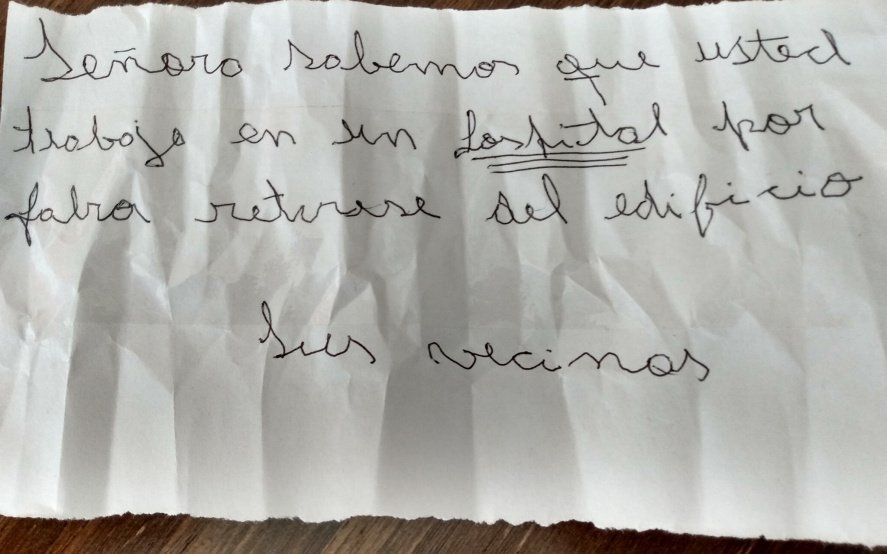 Señora sabemos que usted
trabaja en un hospital por
fabor retirese del edificio
Sus vecinos